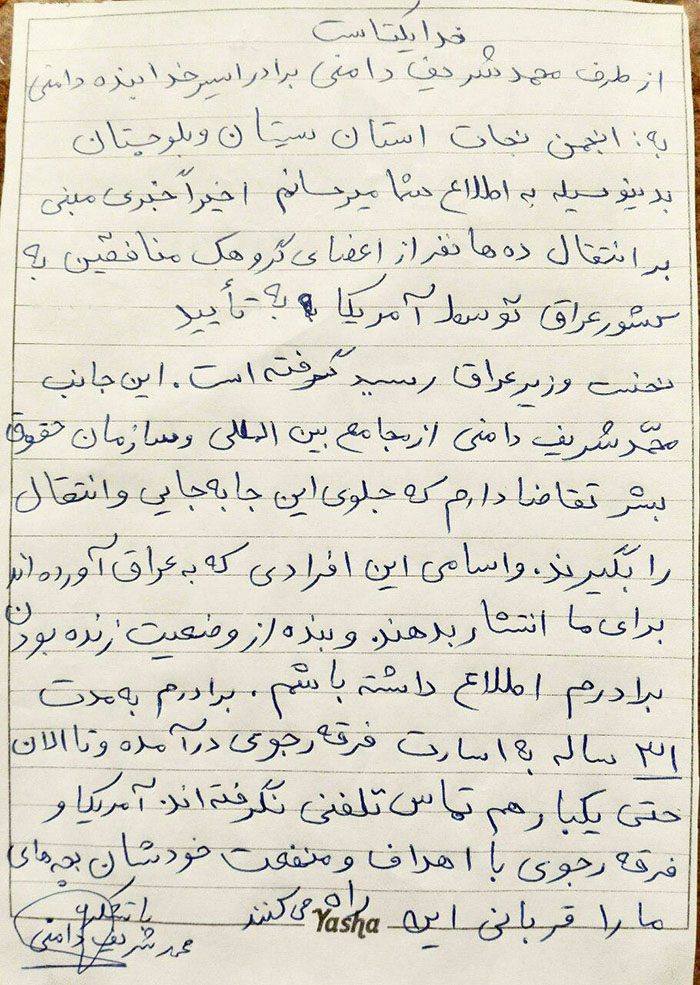 خدا یکتاست
از طرف محمد شریف دامنی برادر اسیر خدابنده دامنی
به: انجمن نجات استان سیستان و بلوچستان
بدینوسیله به اطلاع شما میرسانم اخیراً خبری مبنی
بر انتقال ده ها نفر از اعضای گروهک منافقین به
کشور عراق توسط آمریکا به تأیید
نخست وزیر عراق رسید گرفته است. این جانب
محمّد شریف دامنی از مجامع بین المللی و سازمان حقوق
بشر تقاضا دارم که جلوی این جا به جایی و انتقال
را بگیرند. و اسامی این افرادی که به عراق آورده اند
برای ما انتشار بدهند. و بنده از وضعیت زنده بودن
برادرم اطلاع داشته باشم. برادرم به مدت
۳۱ ساله به اسارت فرقه رجوی درآمده و تا الان
حتی یکبار هم تماس تلفنی نگرفته اند. آمریکا و
فرقه رجوی با اهداف و منفعت خودشان بچه های
ما را قربانی این راه می کنند
Yasha
با تشکر
محمد شریف دامنی